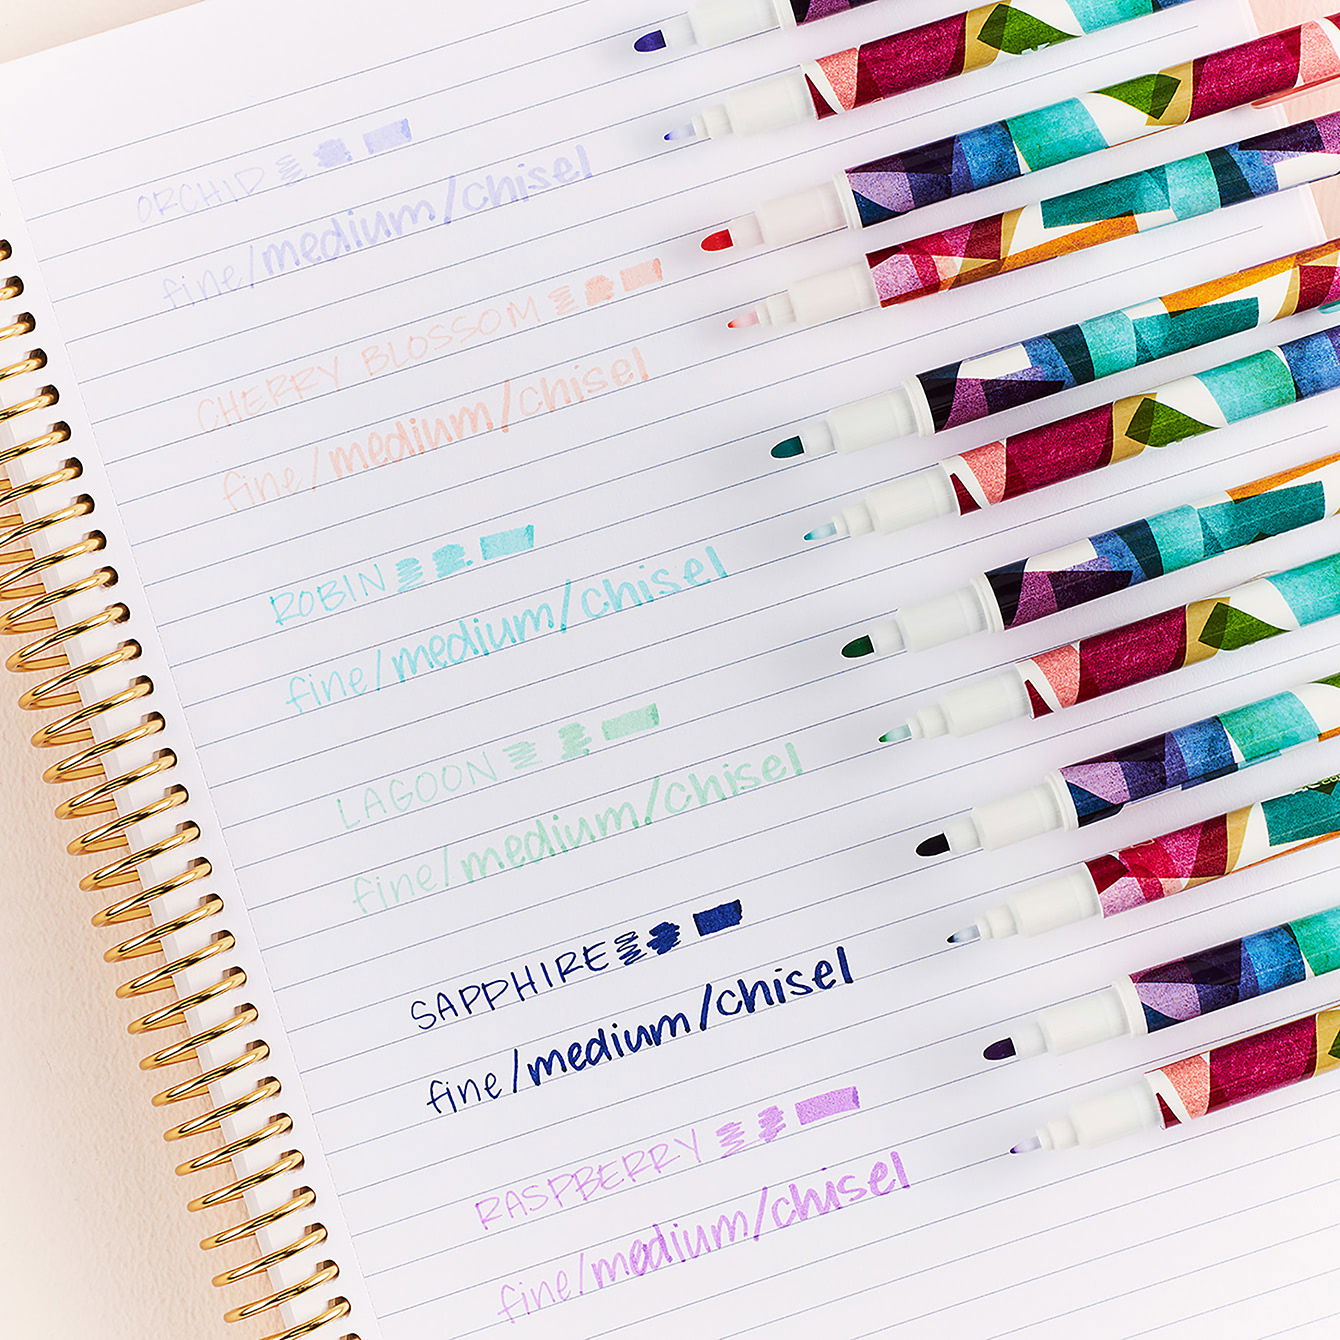 ORCHID
fine/medium/chisel
CHERRY BLOSSOM
fine/medium/chisel
ROBIN
fine/medium/chisel
LAGOON
fine/medium/chisel
SAPPHIRE
fine/medium/chisel
RASPBERRY
fine/medium/chisel